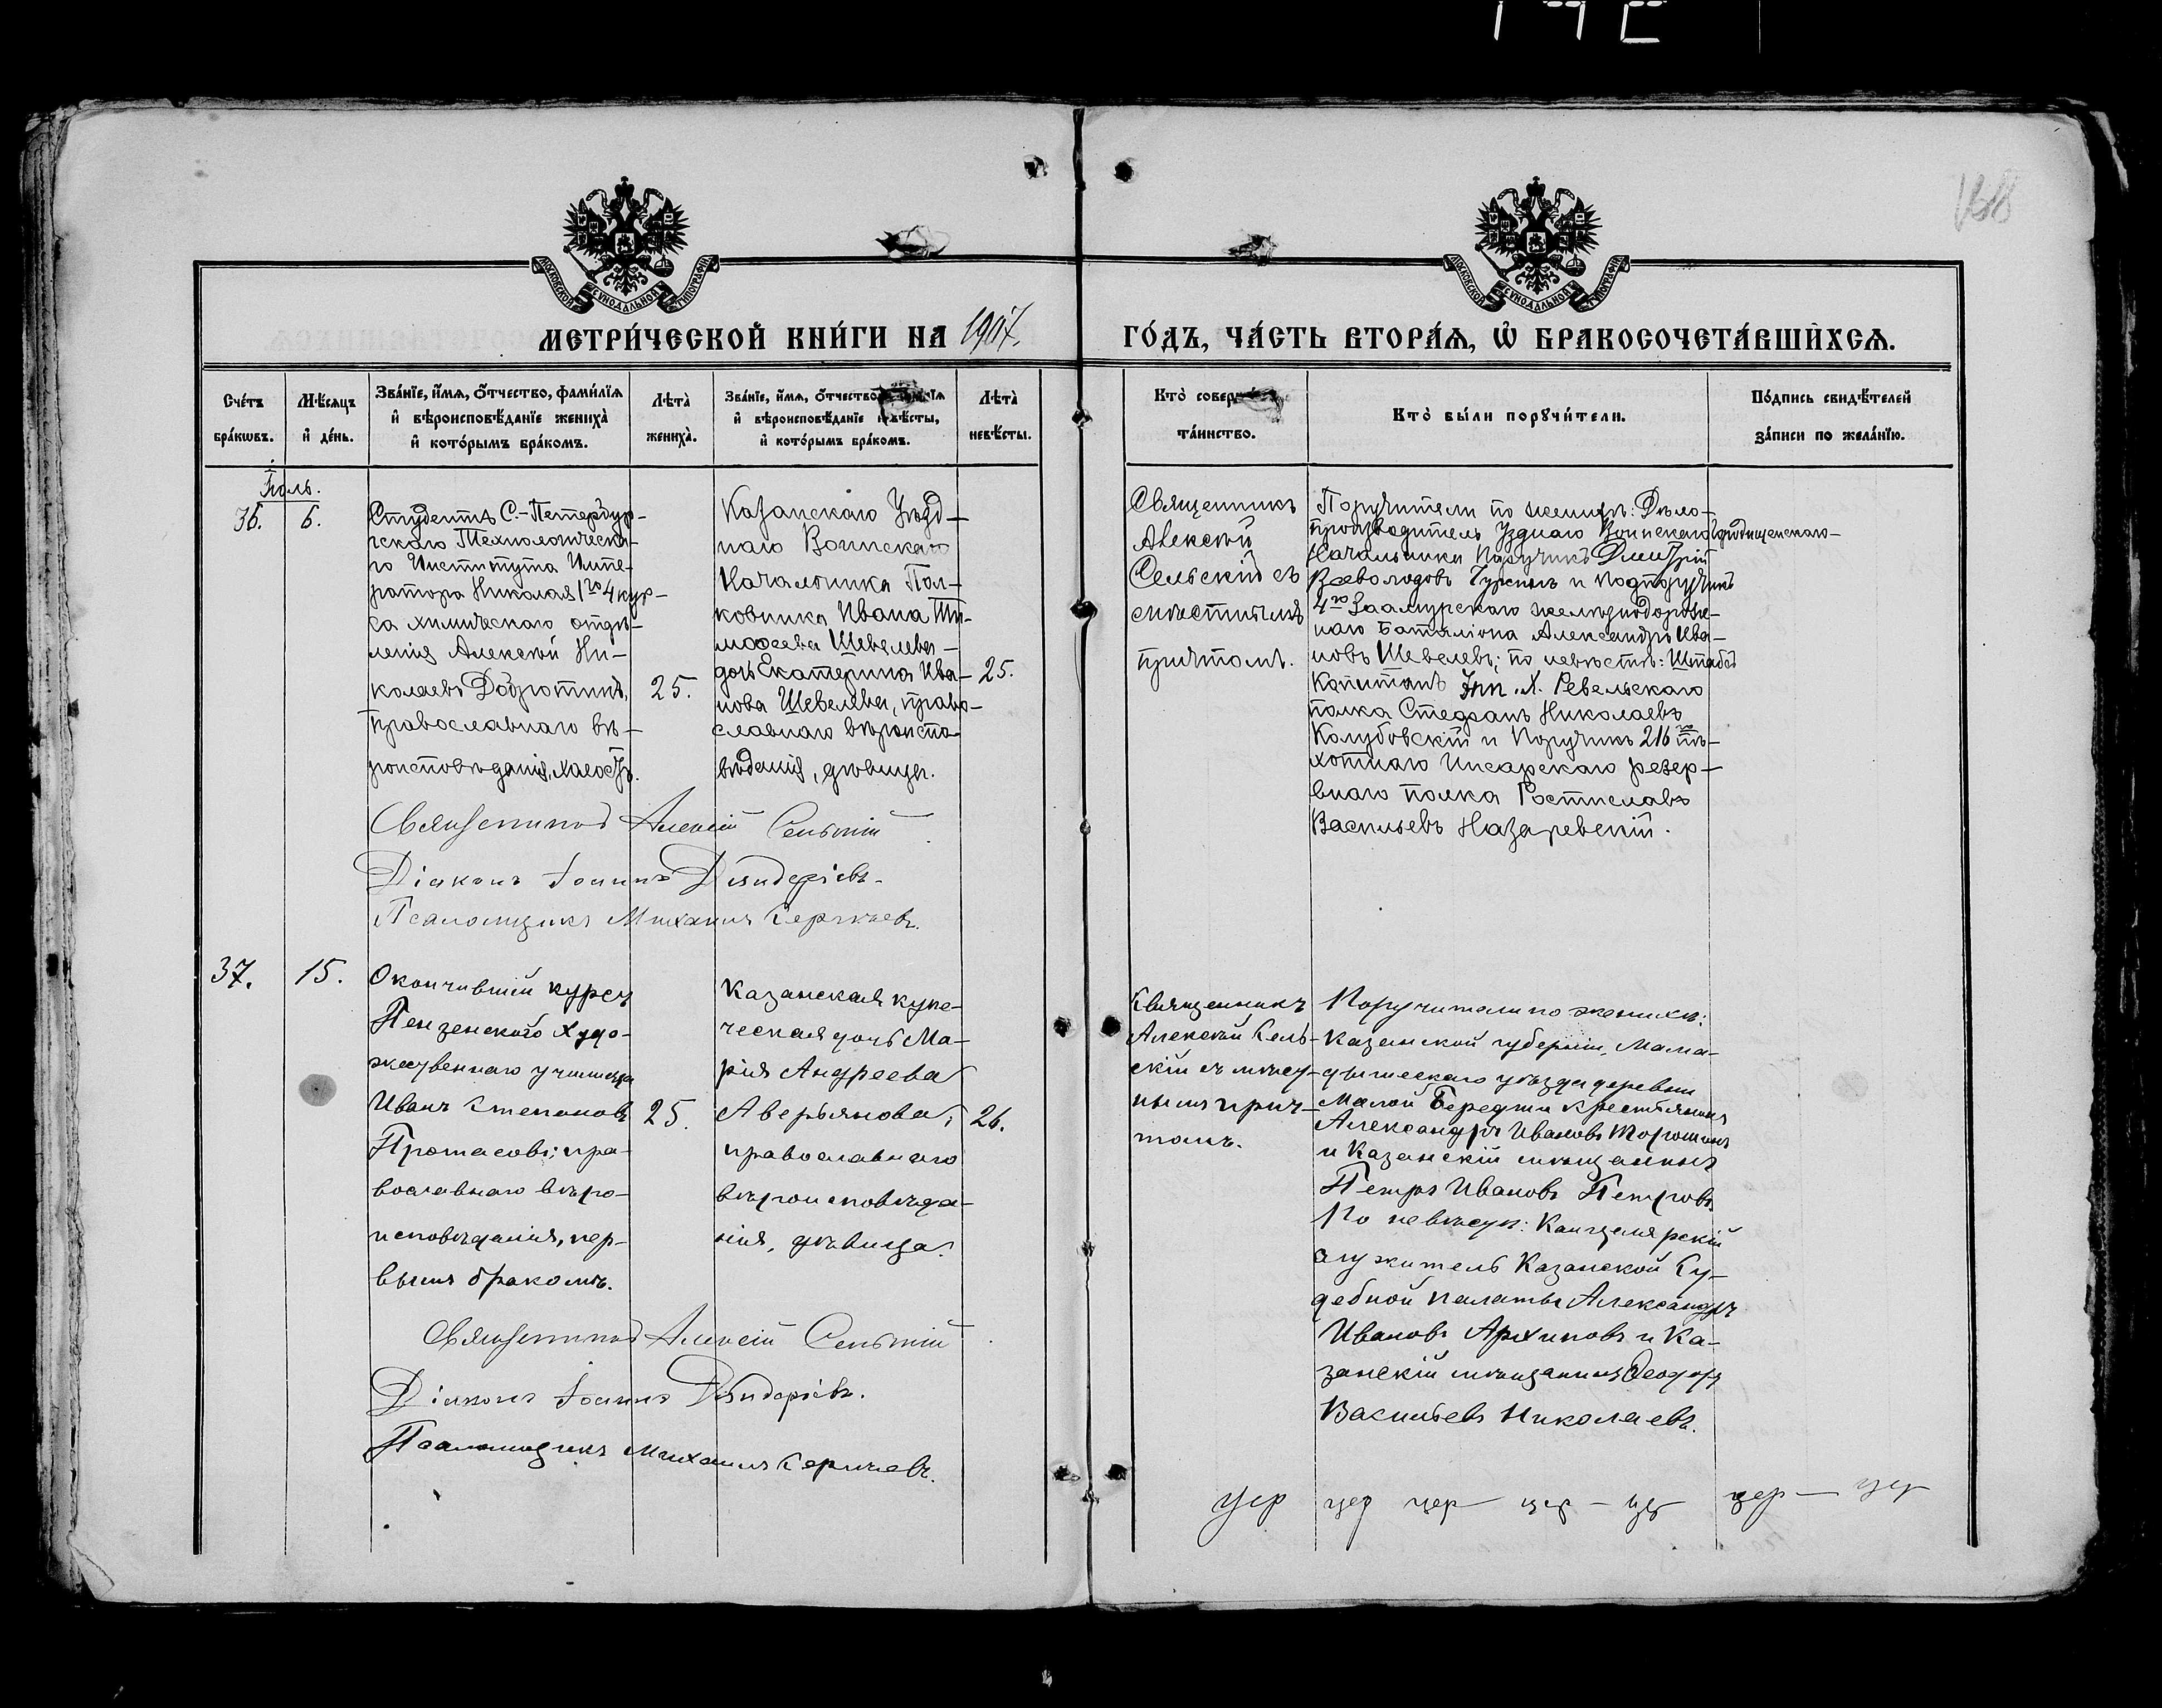 168
МОСКОВСКОЙ СѴНОДАЛЬНОЙ ТИПОГРАФІИ
МОСКОВСКОЙ СѴНОДАЛЬНОЙ ТИПОГРАФІИ
МЕТРИ́ЧЕСКОЙ КНИ́ГИ НА 1907.
ГО́ДЪ, ЧА́СТЬ ВТОРА́Я, Ѡ҆ БРАКОСОЧЕТА́ВШИХСЯ.
Сче́тъ
бра́кωвъ.
Мѣ́сяцъ
и҆ де́нь.
Зва́нїе, и҆́мя, ѻ҆́тчество, фами́лїя
и҆ вѣроисповѣ́данїе жениха̀
и҆ кото́рымъ бра́комъ.
Лѣта̀
жениха̀.
Зва́нїе, и҆́мя, ѻ҆́тчество
и҆ вѣроисповѣ́данїе невѣ́сты,
и҆ кото́рымъ бра́комъ.
Лѣта̀
невѣ́сты.
Кто̀
та́инство.
Кто̀ бы́ли порꙋчи́тели.
По́дпись свидѣ́телей
за́писи по жела́нїю.
Іюль.
36.
6.
Студентъ С.-Петербур-
гскаго Технологическа-
го Института Импе-
ратора Николая Iго 4 кур-
са химическаго отдѣ-
ленія Алексѣй Ни-
колаевъ Добротинъ,
православнаго вѣ-
роисповѣданія, холостъ.
25.
Казанскаго Уѣзд-
наго Воинскаго
Начальника Пол-
ковника Ивана Ти-
моѳеева Шевелева
дочь Екатерина Ива-
нова Шевелева, право-
славнаго вѣроиспо-
вѣданія, дѣвица.
25.
Священникъ
Алексѣй
Сельскій съ
мѣстнымъ
причтомъ.
Поручители по женихѣ: Дѣло-
производитель Уѣзднаго Воинскаго
Начальника Поручикъ Дмитрій
Всеволодовъ и Подпоручикъ
4го Заамурскаго желѣзнодорож-
наго Баталіона Александръ Ива-
новъ Шевелевъ; по невѣстѣ: Штабсъ
Капитанъ Ревельскаго
полка Стефанъ Николаевъ
Колубовскій и Поручикъ 216го пѣ-
хотнаго Инсарскаго резер-
внаго полка Ростиславъ
Васильевъ Назаревскій.
Священникъ Алексій Сельскій
Діаконъ Іоаннъ
Псаломщикъ Михаилъ Сергѣевъ.
37.
15.
Окончившій курсъ
Пензенскаго Худо-
жественнаго училища
Иванъ Степановъ
Протасовъ; пра-
вославнаго вѣро-
исповѣданія, пер-
вымъ бракомъ.
25.
Казанская купе-
ческая дочь Ма-
рія Андреева
Аверьянова,
православнаго
вѣроисповѣда-
нія, дѣвица.
26.
Священникъ
Алексѣй Сель-
скій съ мѣст-
нымъ прич-
томъ.
Поручители по женихѣ:
Казанской губерніи, Мама-
дышскаго уѣзда деревни
Малой крестьянинъ
Александръ Ивановъ Торошинъ
и Казанскій мѣщанинъ
Петръ Ивановъ Петровъ.
По невѣстѣ: Канцелярскій
служитель Казанской Су-
дебной палаты Александръ
Ивановъ Архиповъ и Ка-
занскій мѣщанинъ Ѳеодоръ
Васильевъ Николаевъ.
Священникъ Алексій Сельскій
Діаконъ Іоаннъ
Псаломщикъ Михаилъ Сергѣевъ.